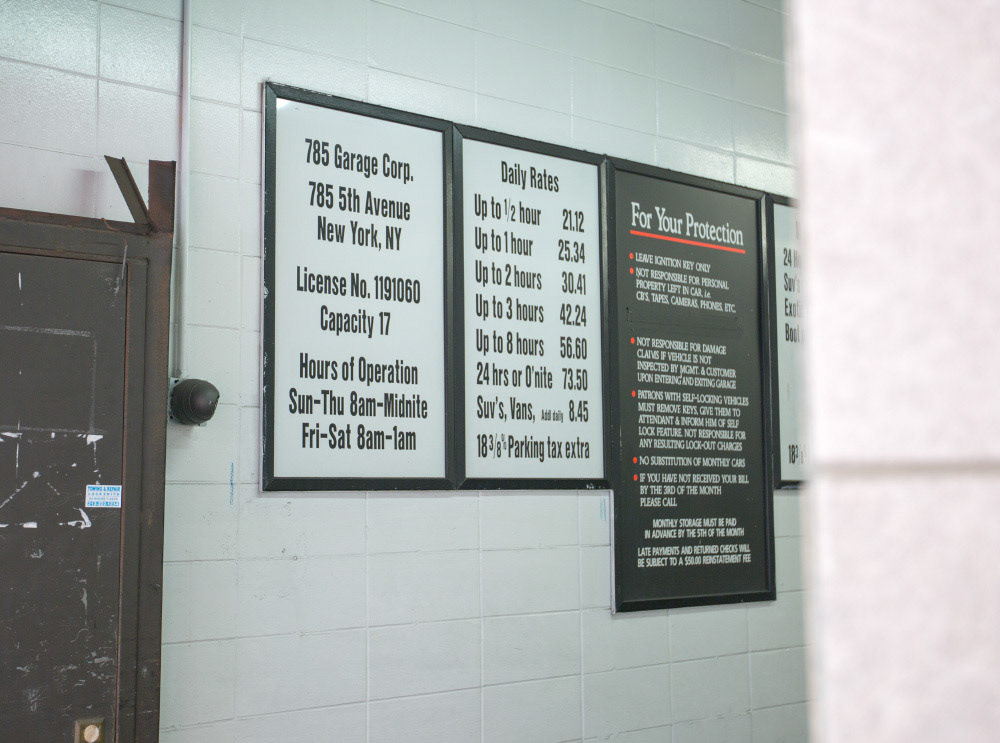 785 Garage Corp.
785 5th Avenue
New York, NY
License No. 1191060
Capacity 17
Hours of Operation
Sun-Thu 8am-Midnite
Fri-Sat 8am-1am
Daily Rates
Up to 1/2 hour 21.12
Up to 1 hour 25.34
Up to 2 hours 30.41
Up to 3 hours 42.24
Up to 8 hours 56.60
24 hrs or O'nite 73.50
Suv's, Vans, Add daily 8.45
18 3/8% Parking tax extra
For Your Protection
• LEAVE IGNITION KEY ONLY
• NOT RESPONSIBLE FOR PERSONAL
PROPERTY LEFT IN CAR, i.e.
CB'S, TAPES, CAMERAS, PHONES, ETC.
• NOT RESPONSIBLE FOR DAMAGE
CLAIMS IF VEHICLE IS NOT
INSPECTED BY MGMT. & CUSTOMER
UPON ENTERING AND EXITING GARAGE
• PATRONS WITH SELF-LOCKING VEHICLES
MUST REMOVE KEYS, GIVE THEM TO
ATTENDANT & INFORM HIM OF SELF
LOCK FEATURE. NOT RESPONSIBLE FOR
ANY RESULTING LOCK-OUT CHARGES
• NO SUBSTITUTION OF MONTHLY CARS
• IF YOU HAVE NOT RECEIVED YOUR BILL
BY THE 3RD OF THE MONTH
PLEASE CALL
MONTHLY STORAGE MUST BE PAID
IN ADVANCE BY THE 5TH OF THE MONTH
LATE PAYMENTS AND RETURNED CHECKS WILL
BE SUBJECT TO A $50.00 REINSTATEMENT FEE
24
Suv's
18 3/8
TOWING & REPAIR
LOCKSMITH